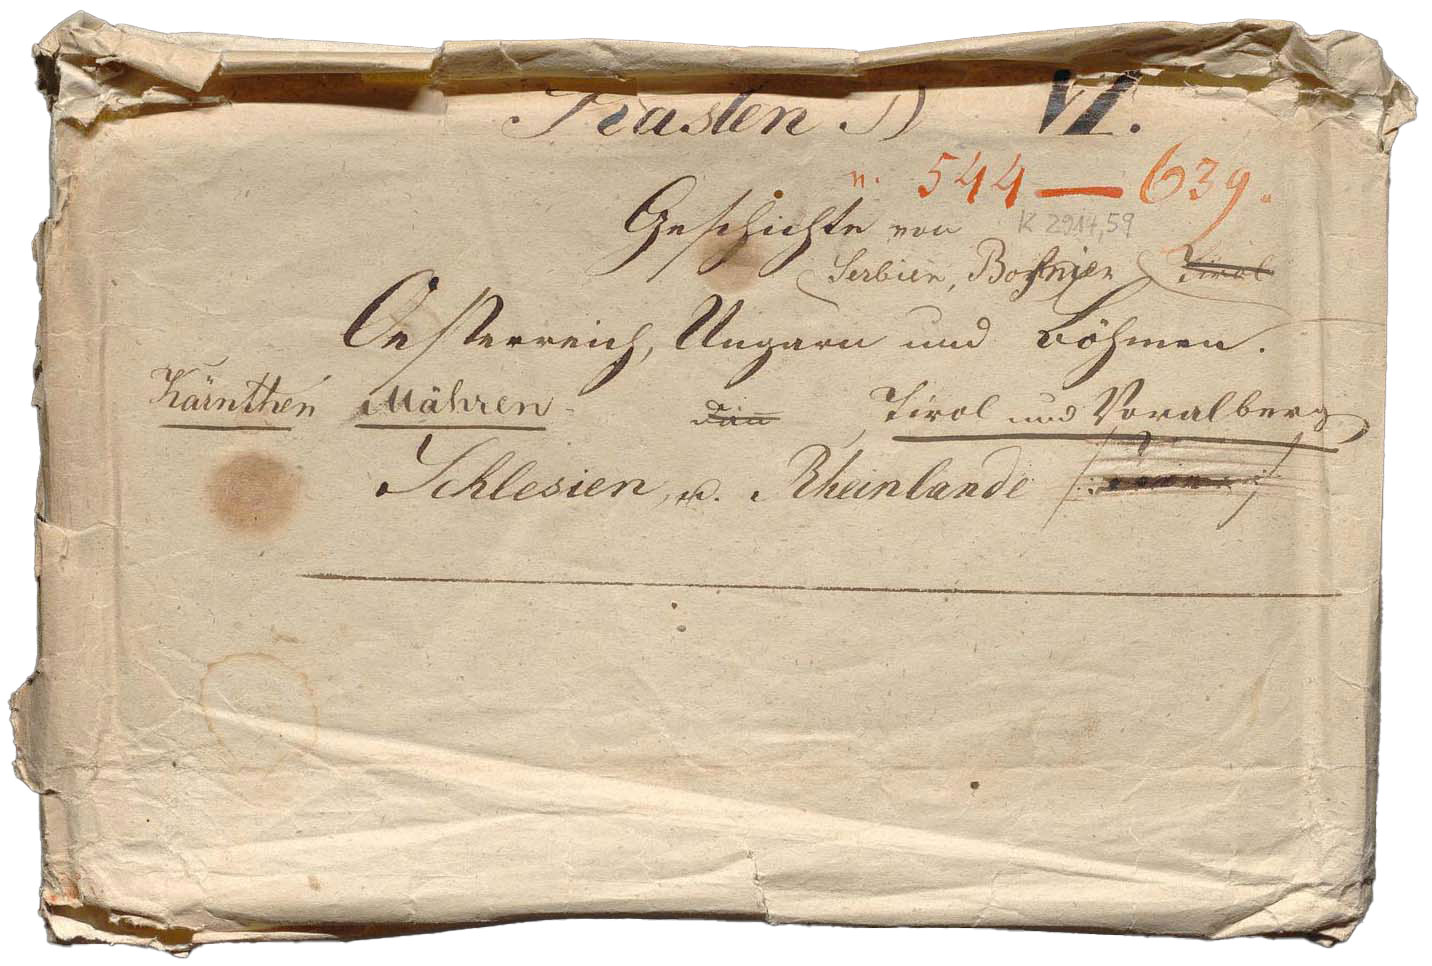 Kasten D VI.
n. 544 — 639.
Geschichte von K 2914,59
Serbien, Bosnien Tirol
Oesterreich, Ungarn und Böhmen.
Kärnthen Mähren Tirol und Voralberg
Schlesien, u. Rheinlande